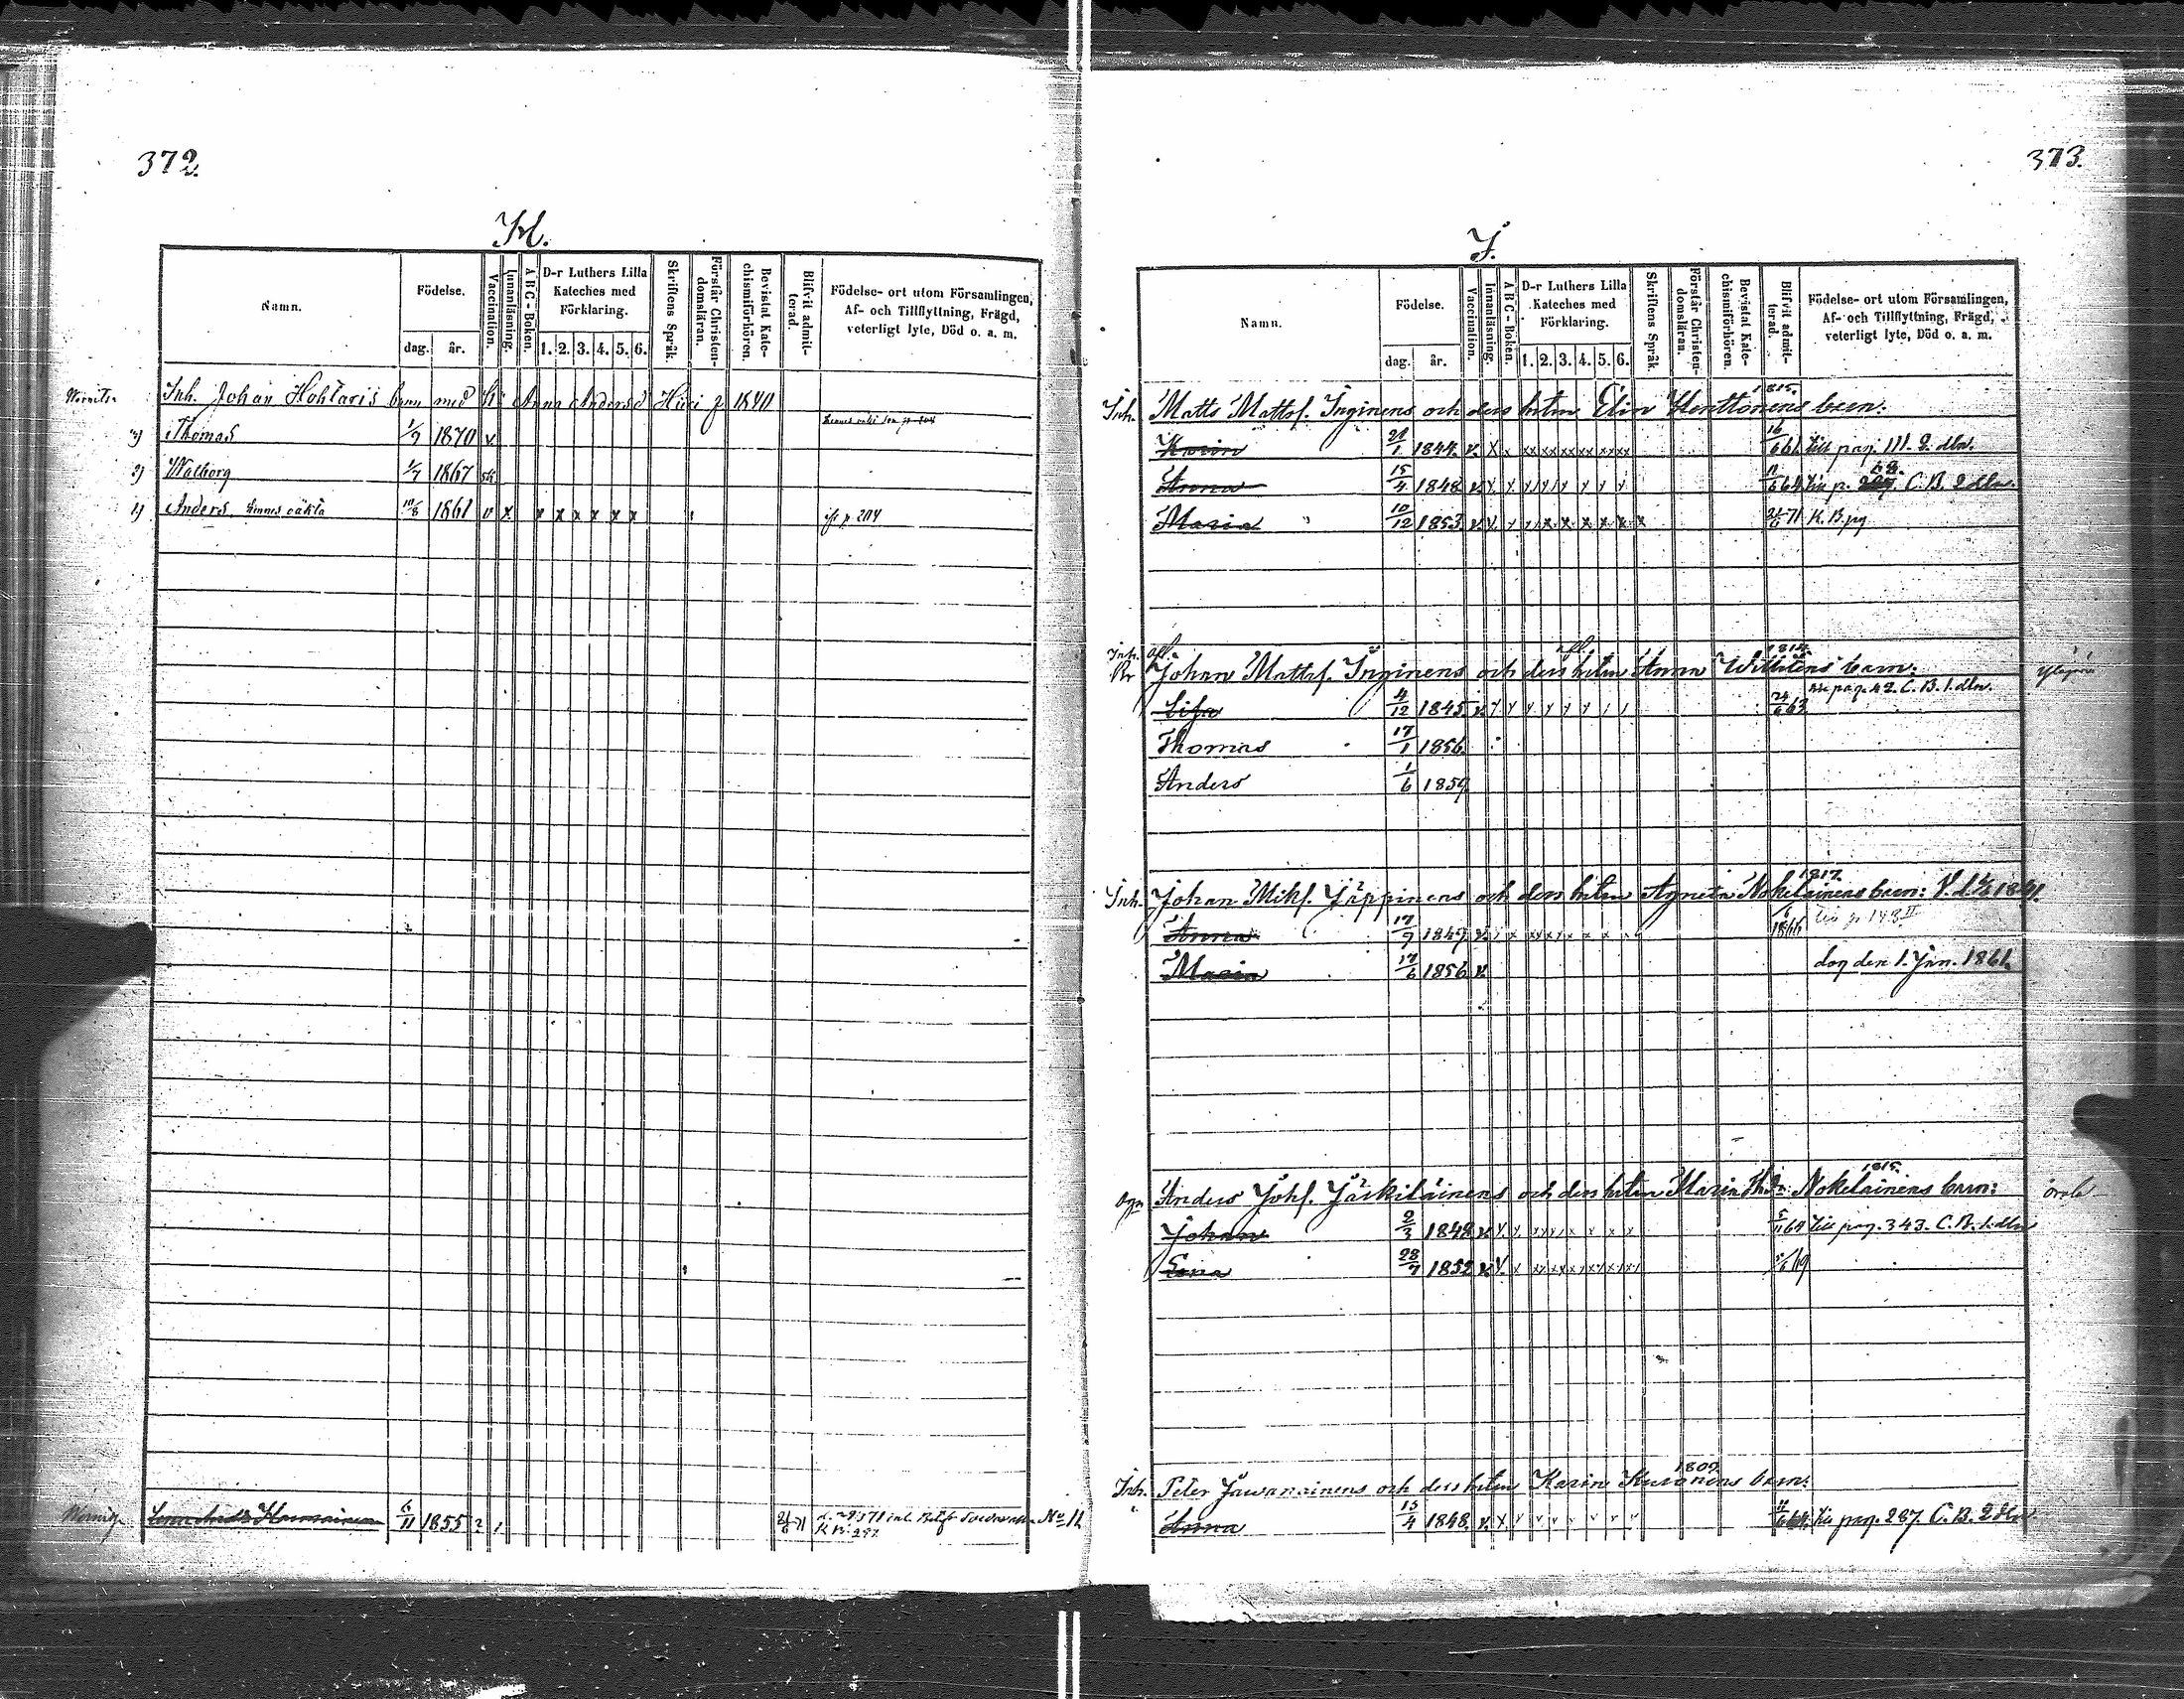 372.
H.
Namn.
Födelse.
dag. år.
Vaccination.
Innanläsning.
A B C - Boken.
D-r Luthers Lilla
Kateches med
Förklaring.
1. 2. 3. 4. 5. 6.
Skriftens Språk.
Förstår Christen-
domsläran.
Bevistat Kate-
chismiförhören.
Blifvit admit-
terad.
Födelse- ort utom Församlingen,
Af- och Tillflyttning, Frägd,
veterligt lyte, Död o. a. m.
Inh. Johan Hohtaris barn med h. Anna Andersd Huri f 1840
3) Thomas 1/7 1870 v
2) Walborg 1/7 1867
1) Anders hennes oäkta 10/8 1861 v x x x x x x x p 204
6/11 1855
21/6 71
No 11
373.
J.
Namn.
Födelse.
dag. år.
Vaccination.
Innanläsning.
A B C - Boken.
D-r Luthers Lilla
Kateches med
Förklaring.
1. 2. 3. 4. 5. 6.
Skriftens Språk.
Förstår Christen-
domsläran.
Bevistat Kate-
chismiförhören.
Blifvit admit-
terad.
Födelse- ort utom Församlingen,
Af- och Tillflyttning, Frägd,
veterligt lyte, Död o. a. m.
1815.
Inh. Matts Mattsf. Inginens och dess hstru Elin Henttonens barn:
Karin 21/1 1844. v. x x xx xx xx xx xx xx 16/6 61. till pag. 111. 2. dln.
Anna 15/4 1848 11/6 64 till p. C. B. 2 dln.
Maria 10/12 1853 21/6 71 K. B. pg
afl. afl. 1814.
Inh. Johan Mattsf. Inginens och dess hstru Anna Wihtens barn:
till pag. 42. C. B. 1. dln.
Lisa 4/12 1845 24/6 63
Thomas 17/1 1856
Anders 1/6 1859
1817.
Inh. Johan Mikf. Jäppinens och dess hstru Agneta Nokelainens barn:
Anna 17/9 1849 1866 till p. 148 II
Maria 17/6 1856 v. dog den 1. Jan. 1861.
1815.
Anders Johf. Jäskiläinens och dess hstru Maria Nokelainens barn:
Johan 9/3 1848 till pag. 343. C. B. 1. dln
Lena 28/7 1852 69
1809
Inh. Peter Jawanainens och dess hstru Karin Kuronens barn:
Anna 15/4 1848. 11/6 64. till pag. 287. C. B. 2 dln.